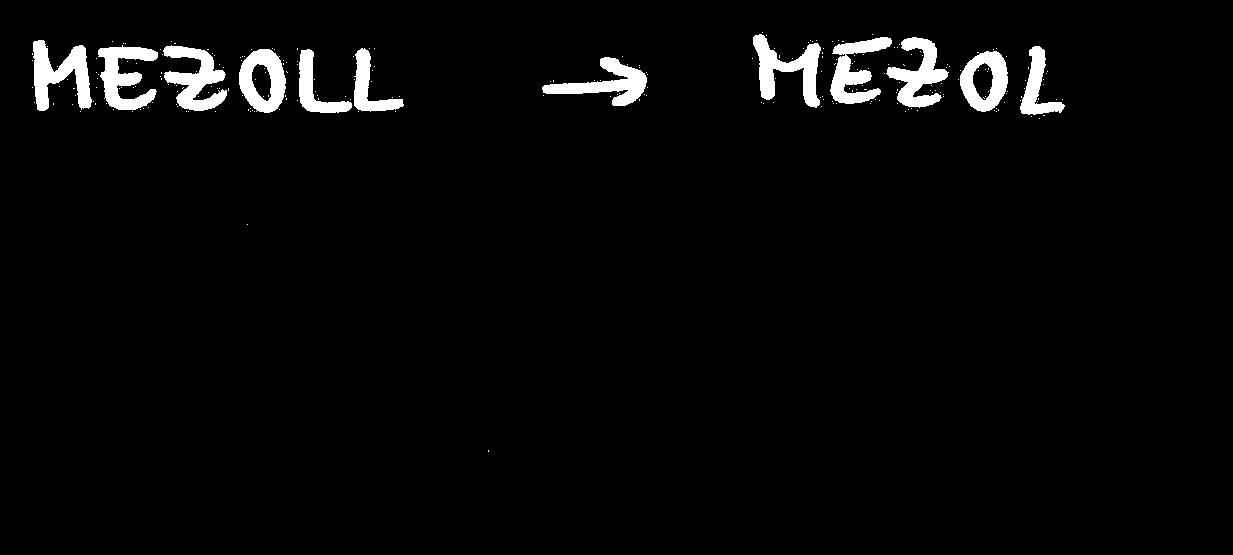 MEZOLL → MEZOL